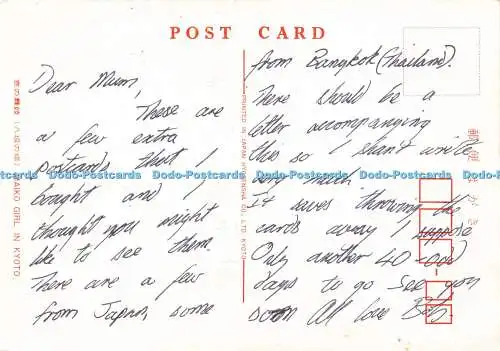 POST CARD
Dear Mum,
These are
a few extra
postcards that I
bought and I
thought you might
like to see them.
There are a few
from Japan, some
from Bangkok (Thailand).
There should be a
letter accompanying
this so I shan't write
very much
It saves throwing the
cards away I suppose
Only another 40-odd
days to go See you
soon All love Bob
MAIKO GIRL IN KYOTO.
PRINTED IN JAPAN
CO., LTD. KYOTO
郵便はがき
Dodo-Postcards Dodo-Postcards Dodo-Postcards